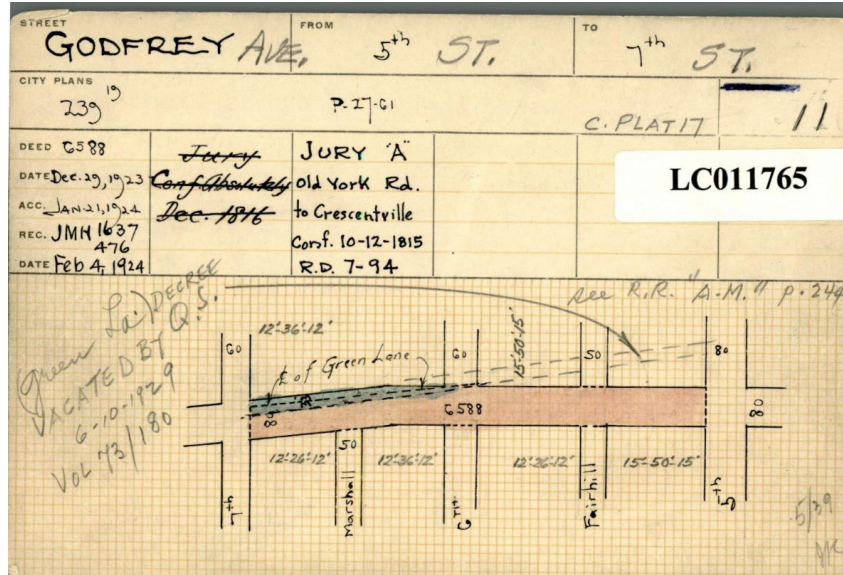 STREET
GODFREY AVE.
FROM
5th ST.
TO
7th ST.
CITY PLANS
239 19
P-27-61
C. PLAT 17
11
DEED 6588
DATE Dec. 29, 1923
ACC. JAN-21, 1924
REC. JMH 1637
476
DATE Feb 4, 1924
Jury
Conf. Absolutely
Dec. 1816
JURY "A"
Old York Rd.
to Crescentville
Conf. 10-12-1815
R.D. 7-94
LC011765
see R.R. "A.M." p. 244
Green La. DECREE
VACATED BY Q.S.
6-10-1929
VOL 73/180
12'-36'-12'
60
₵ of Green Lane
60
15'-50'-15'
50
80
33
80
6588
80
50
12'-26'-12'
12'-36'-12'
12'-26'-12'
15'-50'-15'
7th
Marshall
6TH
Fairhill
5th
5/39